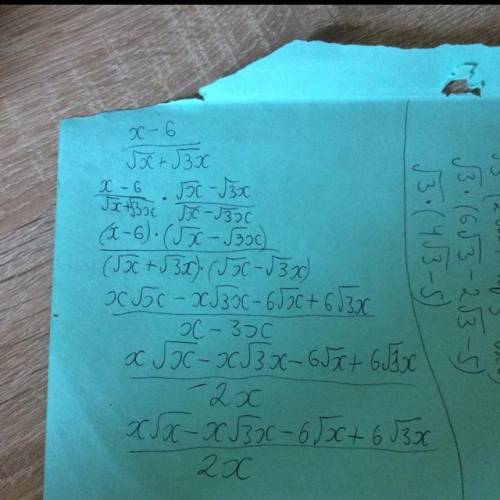 x - 6 / √x + √3x
x - 6 / √x + √3x · √x - √3x / √x - √3x
(x - 6) · (√x - √3x) / (√x + √3x) · (√x - √3x)
x√x - x√3x - 6√x + 6√3x / x - 3x
x√x - x√3x - 6√x + 6√3x / -2x
x√x - x√3x - 6√x + 6√3x / 2x
√3 · (6√3 - 2√3 - 5)
√3 · (4√3 - 5)